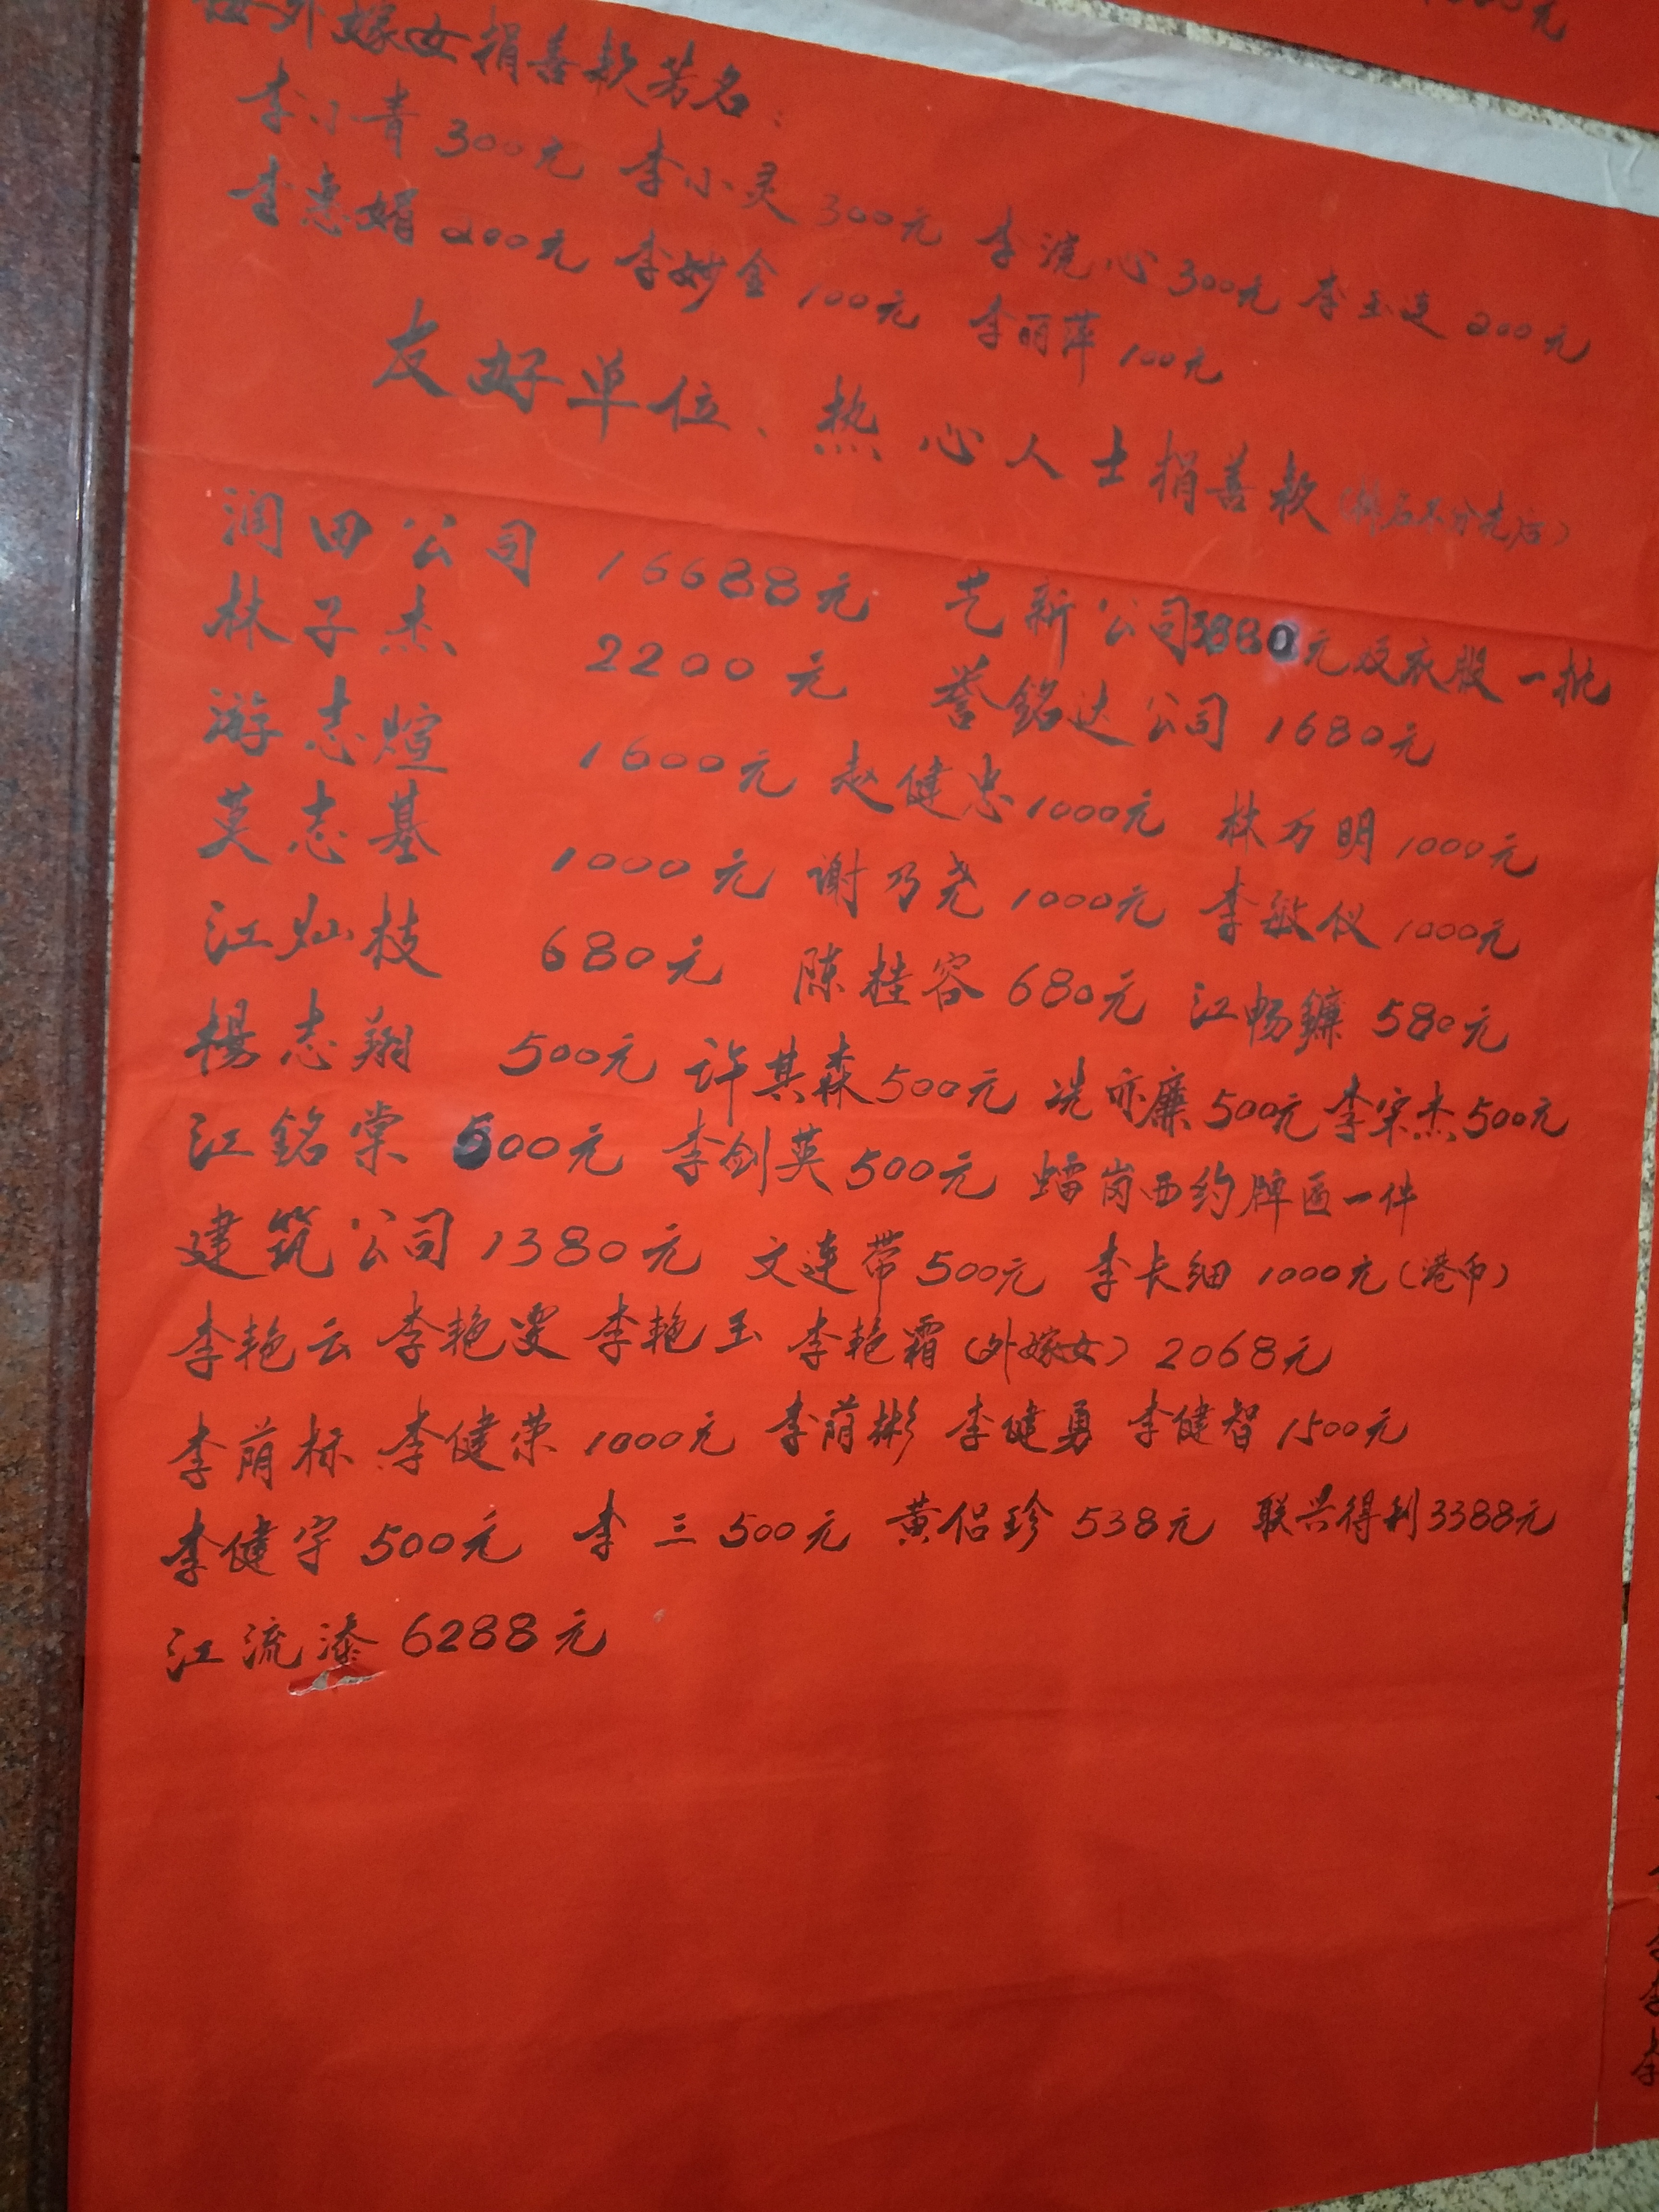 外嫁女捐善款芳名：
李小青 300元 李小灵 300元 李浣心 300元 李玉连 200元
李惠娟 200元 李妙金 100元 李丽萍 100元
友好单位、热心人士捐善款（排名不分先后）
润田公司 16688元 艺新公司3880元及衣服一批
林子杰 2200元 誉铭达公司 1680元
游志煊 1600元 赵健忠 1000元 林万明 1000元
莫志基 1000元 谢乃尧 1000元 李敏仪 1000元
江灿枝 680元 陈桂容 680元 江畅鐮 580元
楊志翔 500元 许其森 500元 冼亦廉 500元 李宋杰 500元
江銘棠 500元 李剑英 500元 蟠岗西约牌匾一件
建筑公司 1380元 文连带 500元 李长细 1000元（港币）
李艳云 李艳雯 李艳玉 李艳霜（外嫁女）2068元
李荫标 李健荣 1000元 李荫彬 李健勇 李健智 1500元
李健宇 500元 李三 500元 黄侣珍 538元 联兴得利 3388元
江流漆 6288元